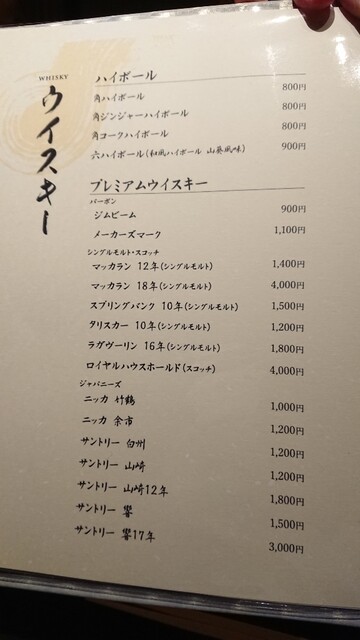 WHISKY
ウイスキー
ハイボール
角ハイボール 800円
角ジンジャーハイボール 800円
角コークハイボール 800円
六ハイボール(和風ハイボール 山葵風味) 900円
プレミアムウイスキー
バーボン
ジムビーム 900円
メーカーズマーク 1,100円
シングルモルト・スコッチ
マッカラン 12年(シングルモルト) 1,400円
マッカラン 18年(シングルモルト) 4,000円
スプリングバンク 10年(シングルモルト) 1,500円
タリスカー 10年(シングルモルト) 1,200円
ラガヴーリン 16年(シングルモルト) 1,800円
ロイヤルハウスホールド(スコッチ) 4,000円
ジャパニーズ
ニッカ 竹鶴 1,000円
ニッカ 余市 1,200円
サントリー 白州 1,200円
サントリー 山崎 1,200円
サントリー 山崎12年 1,800円
サントリー 響 1,500円
サントリー 響17年 3,000円